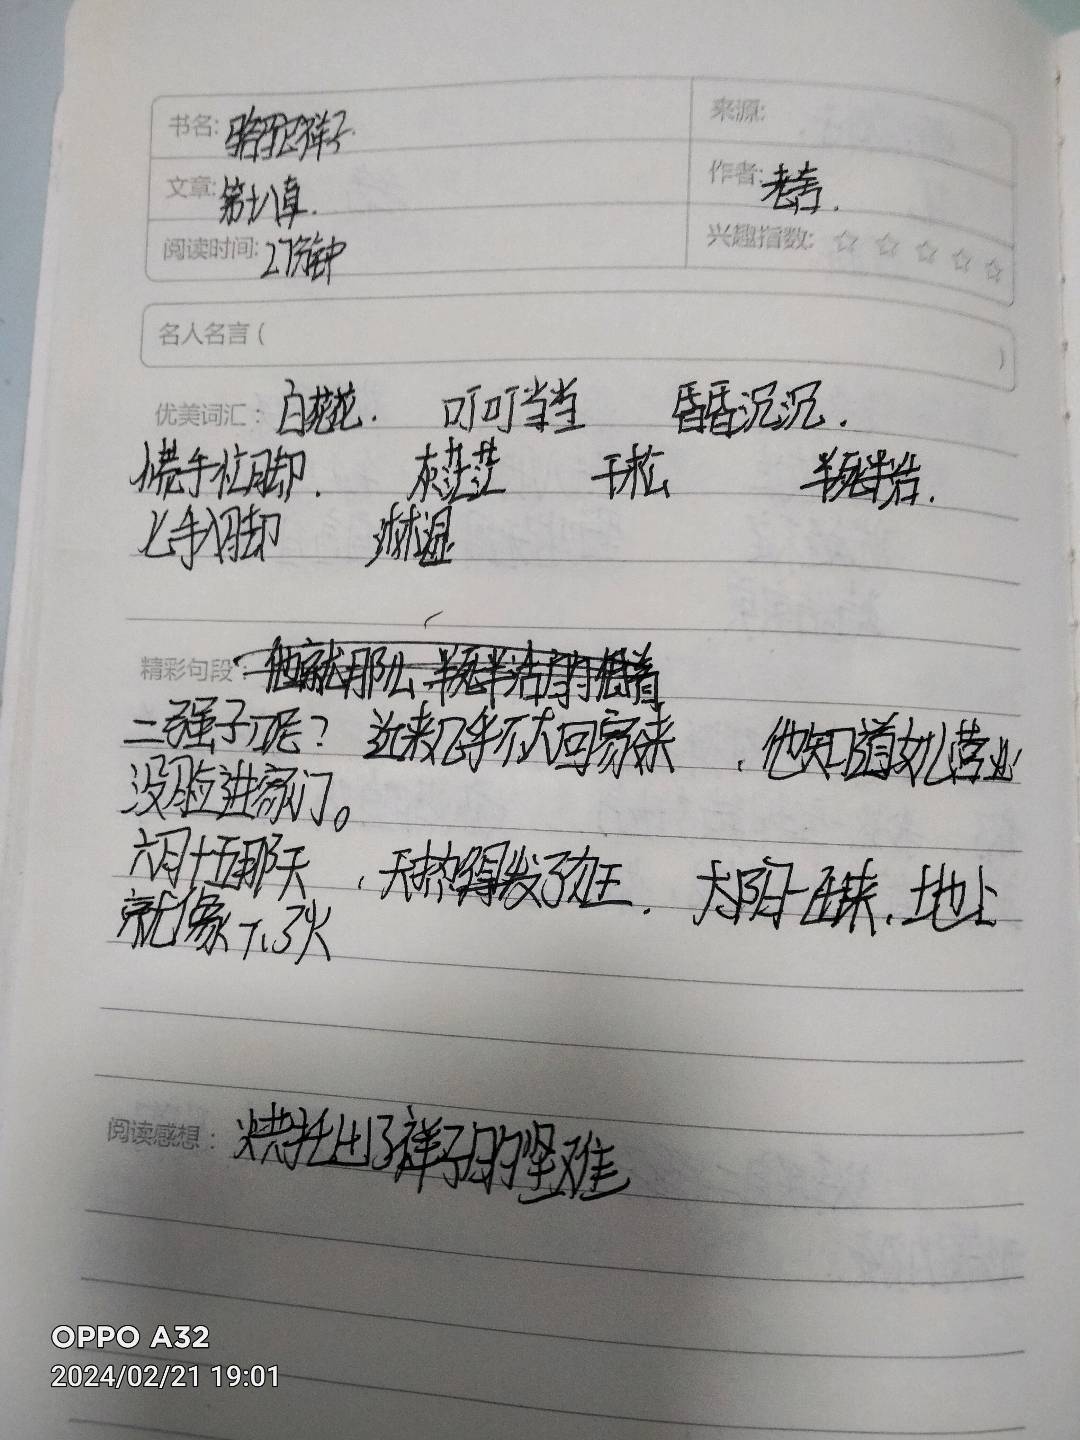 书名: 骆驼祥子 来源:
文章: 第十八章. 作者: 老舍.
阅读时间: 27分钟 兴趣指数: ☆ ☆ ☆ ☆ ☆
名人名言 ( )
优美词汇: 白花花. 叮叮当当 昏昏沉沉.
慌手忙脚. 灰茫茫 干松 半死半活.
七手八脚 淋湿
精彩句段: 他就那么半死半活的 着
二强子呢? 近来几乎不大回家来, 他知道女儿营业
没脸进家门。
六月十五那天, 天热得发了狂. 太阳一出来, 地上
就像下了火
阅读感想: 烘托出了祥子的坚难
OPPO A32
2024/02/21 19:01